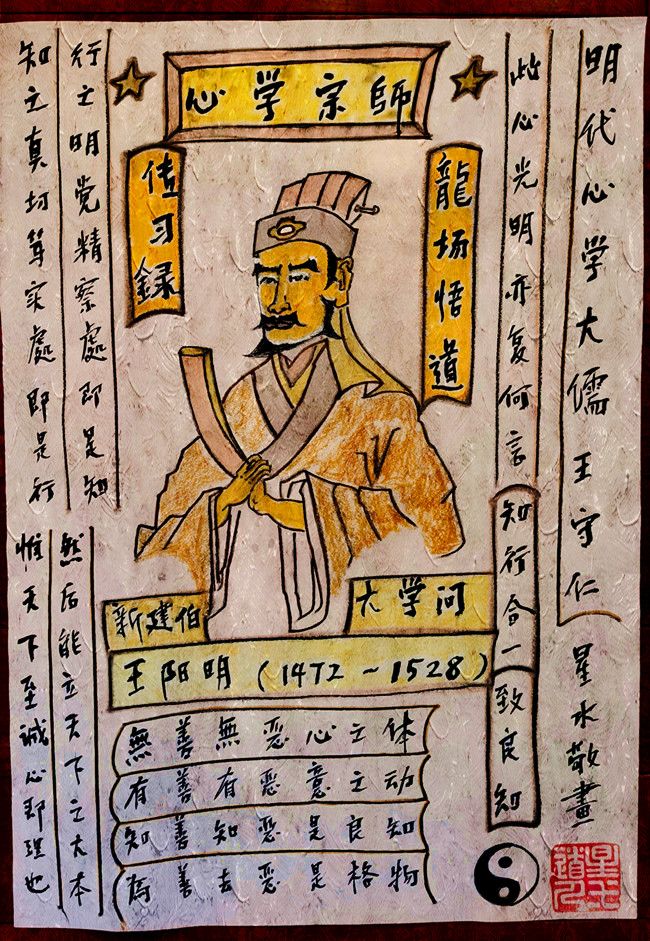 明代心学大儒王守仁
星水敬畫
此心光明亦复何言
知行合一
致良知
心学宗師
龍场悟道
传习録
行之明觉精察處即是知
知之真切笃实處即是行
大学问
新建伯
王阳明(1472~1528)
無善無恶心之体
有善有恶意之动
知善知恶是良知
為善去恶是格物
然后能立天下之大本
惟天下至誠心即理也